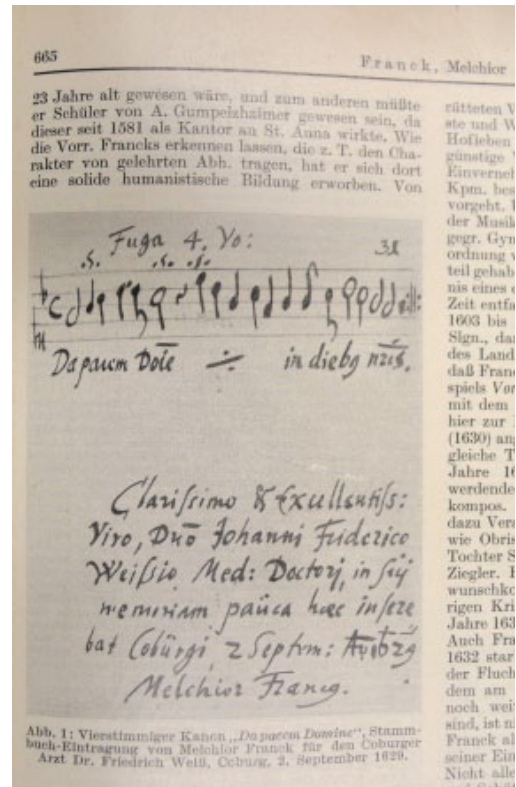 665
Franck, Melchior
23 Jahre alt gewesen wäre, und zum anderen müßte
er Schüler von A. Gumpelzhaimer gewesen sein, da
dieser seit 1581 als Kantor an St. Anna wirkte. Wie
die Vorr. Francks erkennen lassen, die z. T. den Cha-
rakter von gelehrten Abh. tragen, hat er sich dort
eine solide humanistische Bildung erworben. Von
Fuga 4. Vo:
.S. .S. .S.
Da pacem Dõne in diebg nr̃is.
Clarissimo & Excellentiss:
Viro, Dnō Johanni Friderico
Weissio Med: Doctorj, in suj
memoriam paŭca hæc insere
bat Cobŭrgi 2 Septm:
Melchior Franc9.
Abb. 1: Vierstimmiger Kanon „Da pacem Domine“, Stamm-
buch-Eintragung von Melchior Franck für den Coburger
Arzt Dr. Friedrich Weiß, Coburg, 2. September 1629.
rütteten
ste und
Hofleben
günstige
Einverneh
Kpm. bes
vorgeht.
der Musik
gegr. Gyn
ordnung
teil gehab
nis eines
Zeit entfa
1603 bis
Slgn., da
des Land
daß Franc
spiels Vor
mit dem
hier zur
(1630) ang
gleiche T
Jahre 16
werdende
kompos.
dazu Vera
wie Obris
Tochter S
Ziegler.
wunschko
rigen Kri
Jahre 163
Auch Fra
1632 star
der Fluch
dem am
noch wei
sind, ist ni
Franck al
seiner Ein
Nicht alle